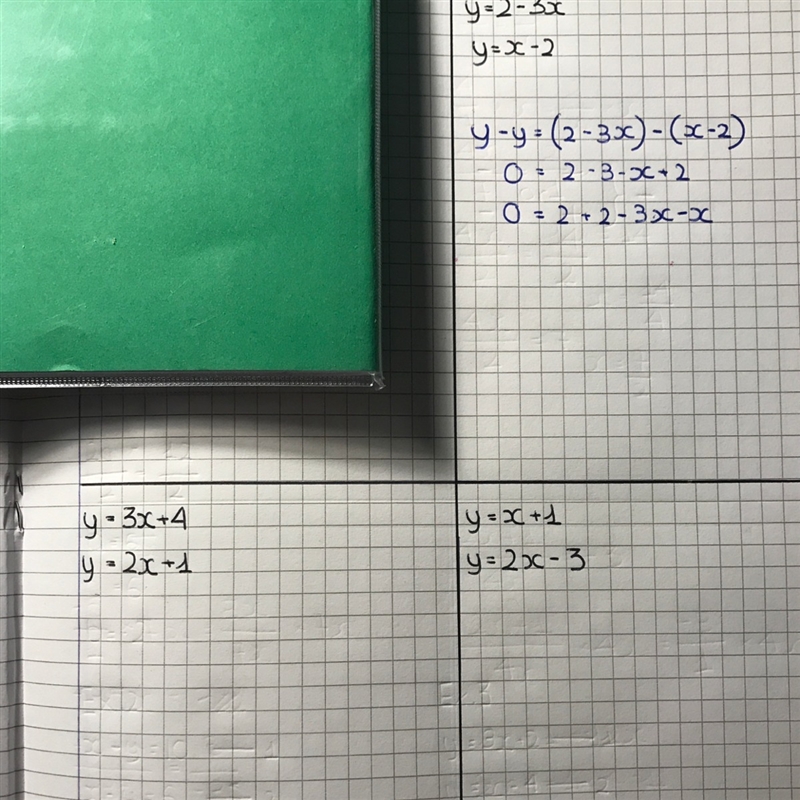 y=2-3x
y=x-2
y-y=(2-3x)-(x-2)
0 = 2-3-x+2
0 = 2+2-3x-x
y=3x+4
y=2x+1
y=x+1
y=2x-3